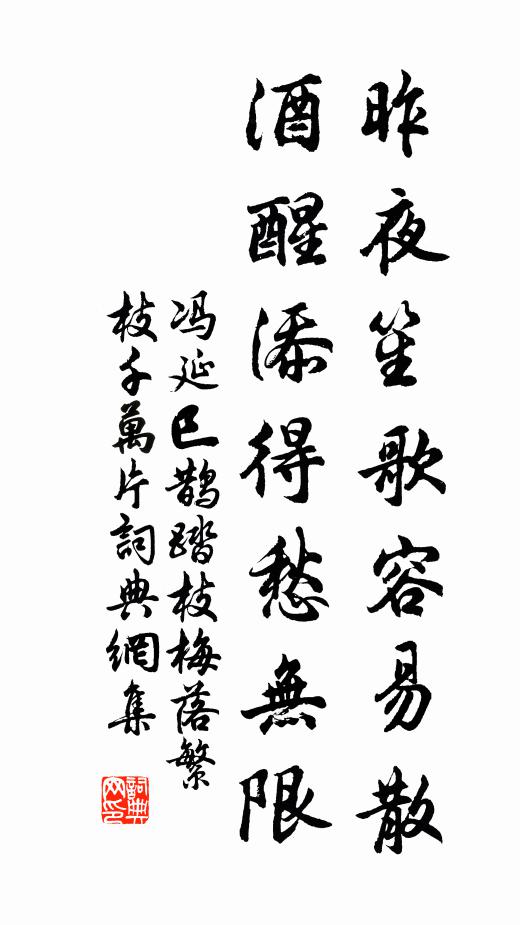 昨夜笙歌容易散
酒醒添得愁無限
冯延巳鹊踏枝梅落繁
枝千萬片詞典網集
詞典
网印